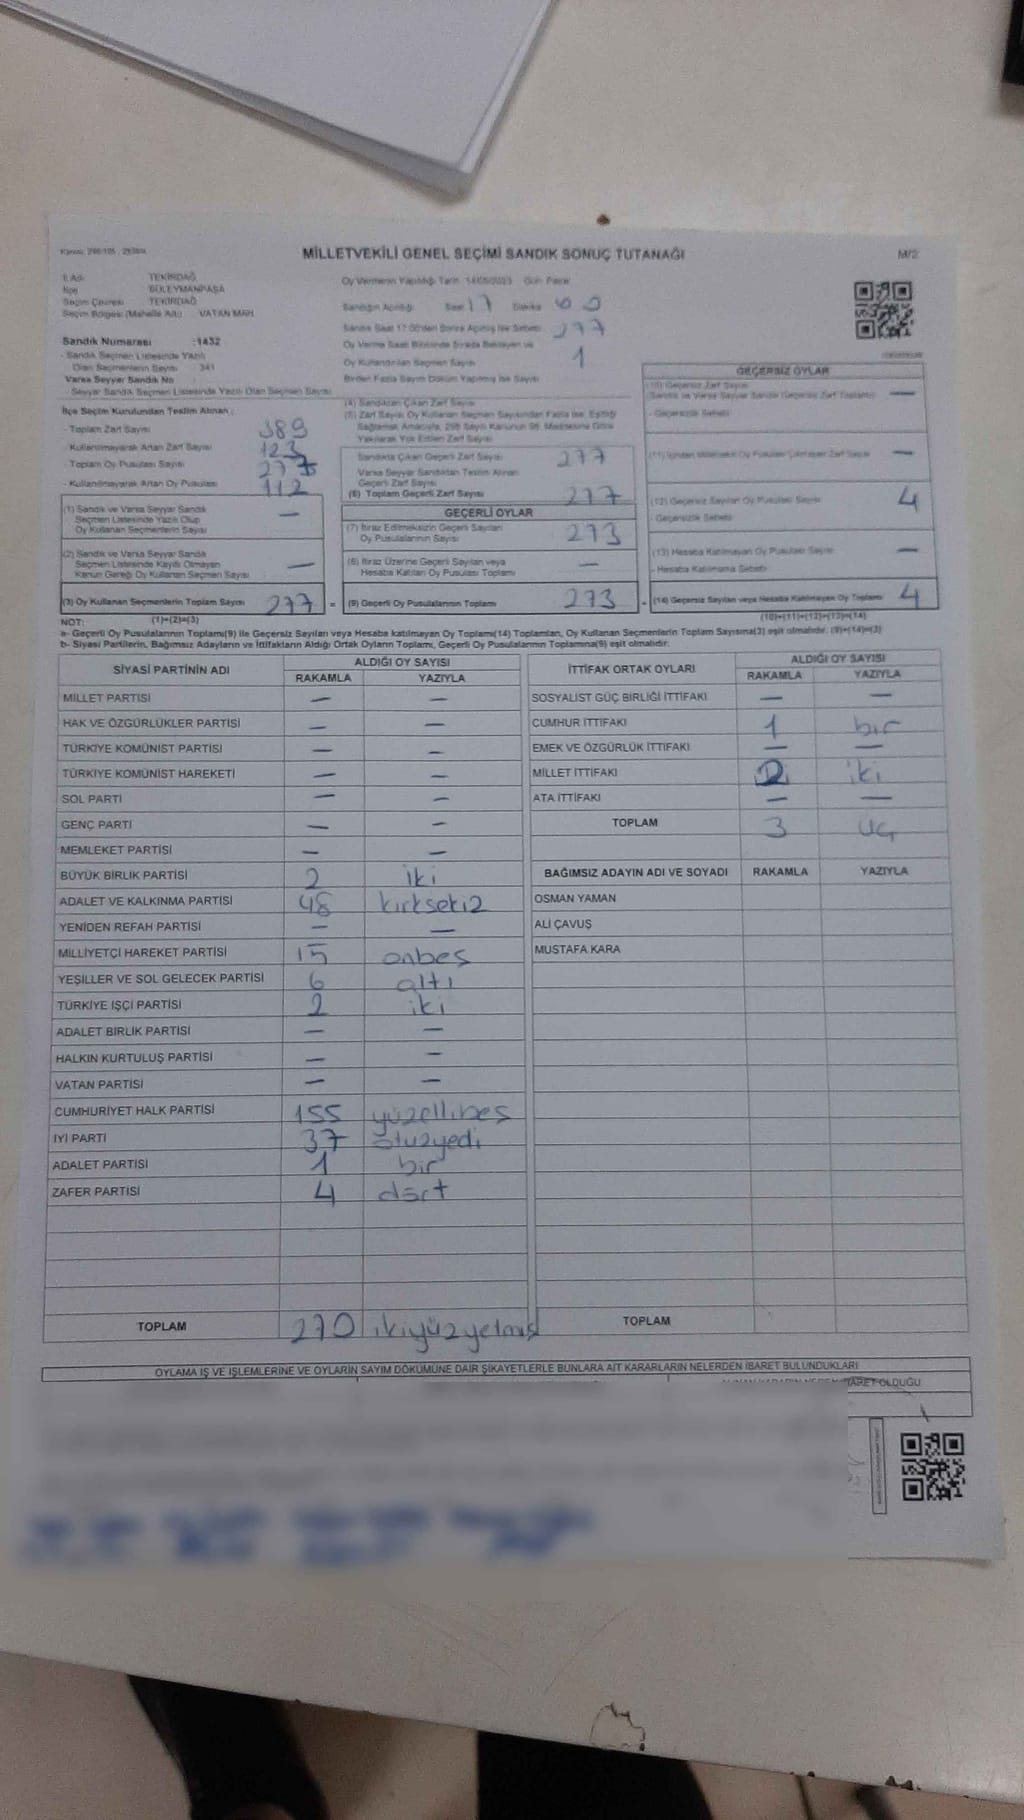 MİLLETVEKİLİ GENEL SEÇİMİ SANDIK SONUÇ TUTANAĞI
M/2
İl Adı TEKİRDAĞ
İlçe SÜLEYMANPAŞA
Seçim Çevresi TEKİRDAĞ
Seçim Bölgesi (Mahalle Adı) VATAN MAH
Sandık Numarası :1432
- Sandık Seçmen Listesinde Yazılı
Olan Seçmenlerin Sayısı 341
Varsa Seyyar Sandık No
- Seyyar Sandık Seçmen Listesinde Yazılı Olan Seçmen Sayısı
Oy Vermenin Yapıldığı Tarih 14/05/2023 Gün Pazar
Sandığın Açıldığı Saat 17 Dakika
Sandık Saat 17.00'den Sonra Açılmış İse Sebebi 277
Oy Verme Saati Bitiminde Sırada Bekleyen ve
Oy Kullandırılan Seçmen Sayısı 1
Birden Fazla Sayım Döküm Yapılmış İse Sayısı
İlçe Seçim Kurulundan Teslim Alınan
- Toplam Zarf Sayısı 389
- Kullanılmayarak Artan Zarf Sayısı 123
- Toplam Oy Pusulası Sayısı
- Kullanılmayarak Artan Oy Pusulası 112
(1) Sandık ve Varsa Seyyar Sandık
Seçmen Listesinde Yazılı Olup
Oy Kullanan Seçmenlerin Sayısı —
(2) Sandık ve Varsa Seyyar Sandık
Seçmen Listesinde Kayıtlı Olmayan
Kanun Gereği Oy Kullanan Seçmen Sayısı —
(3) Oy Kullanan Seçmenlerin Toplam Sayısı 277 =
(4) Sandıktan Çıkan Zarf Sayısı
(5) Zarf Sayısı Oy Kullanan Seçmen Sayısından Fazla İse, Eşitliği
Sağlamak Amacıyla, 298 Sayılı Kanunun 98. Maddesine Göre
Yakılarak Yok Edilen Zarf Sayısı
Sandıkta Çıkan Geçerli Zarf Sayısı 277
Varsa Seyyar Sandıktan Teslim Alınan
Geçerli Zarf Sayısı
(6) Toplam Geçerli Zarf Sayısı 277
GEÇERLİ OYLAR
(7) İtiraz Edilmeksizin Geçerli Sayılan
Oy Pusulalarının Sayısı 273
(8) İtiraz Üzerine Geçerli Sayılan veya
Hesaba Katılan Oy Pusulası Toplamı —
(9) Geçerli Oy Pusulalarının Toplamı 273
GEÇERSİZ OYLAR
(10) Geçersiz Zarf Sayısı
(Sandık ve Varsa Seyyar Sandık Geçersiz Zarf Toplamı) —
- Geçersizlik Sebebi
(11) İçinden Milletvekili Oy Pusulası Çıkmayan Zarf Sayısı —
(12) Geçersiz Sayılan Oy Pusulası Sayısı 4
- Geçersizlik Sebebi
(13) Hesaba Katılmayan Oy Pusulası Sayısı —
- Hesaba Katılmama Sebebi
(14) Geçersiz Sayılan veya Hesaba Katılmayan Oy Toplamı 4
NOT: (1)+(2)=(3) (10)+(11)+(12)+(13)=(14)
a- Geçerli Oy Pusulalarının Toplamı(9) ile Geçersiz Sayılan veya Hesaba katılmayan Oy Toplamı(14) Toplamları, Oy Kullanan Seçmenlerin Toplam Sayısına(3) eşit olmalıdır. (9)+(14)=(3)
b- Siyasi Partilerin, Bağımsız Adayların ve İttifakların Aldığı Ortak Oyların Toplamı, Geçerli Oy Pusulalarının Toplamına(9) eşit olmalıdır.
SİYASİ PARTİNİN ADI ALDIĞI OY SAYISI
RAKAMLA YAZIYLA
MİLLET PARTİSİ — —
HAK VE ÖZGÜRLÜKLER PARTİSİ — —
TÜRKİYE KOMÜNİST PARTİSİ — —
TÜRKİYE KOMÜNİST HAREKETİ — —
SOL PARTİ — —
GENÇ PARTİ — —
MEMLEKET PARTİSİ — —
BÜYÜK BİRLİK PARTİSİ 2 iki
ADALET VE KALKINMA PARTİSİ 48 kırksekiz
YENİDEN REFAH PARTİSİ — —
MİLLİYETÇİ HAREKET PARTİSİ 15 onbeş
YEŞİLLER VE SOL GELECEK PARTİSİ 6 altı
TÜRKİYE İŞÇİ PARTİSİ 2 iki
ADALET BİRLİK PARTİSİ — —
HALKIN KURTULUŞ PARTİSİ — —
VATAN PARTİSİ — —
CUMHURİYET HALK PARTİSİ 155 yüzellibeş
İYİ PARTİ 37 otuzyedi
ADALET PARTİSİ 1 bir
ZAFER PARTİSİ 4 dört
TOPLAM 270 ikiyüzyetmiş
İTTİFAK ORTAK OYLARI ALDIĞI OY SAYISI
RAKAMLA YAZIYLA
SOSYALİST GÜÇ BİRLİĞİ İTTİFAKI — —
CUMHUR İTTİFAKI 1 bir
EMEK VE ÖZGÜRLÜK İTTİFAKI — —
MİLLET İTTİFAKI 2 iki
ATA İTTİFAKI — —
TOPLAM 3 üç
BAĞIMSIZ ADAYIN ADI VE SOYADI RAKAMLA YAZIYLA
OSMAN YAMAN
ALİ ÇAVUŞ
MUSTAFA KARA
TOPLAM
OYLAMA İŞ VE İŞLEMLERİNE VE OYLARIN SAYIM DÖKÜMÜNE DAİR ŞİKAYETLERLE BUNLARA AİT KARARLARIN NELERDEN İBARET BULUNDUKLARI
İBARET OLDUĞU